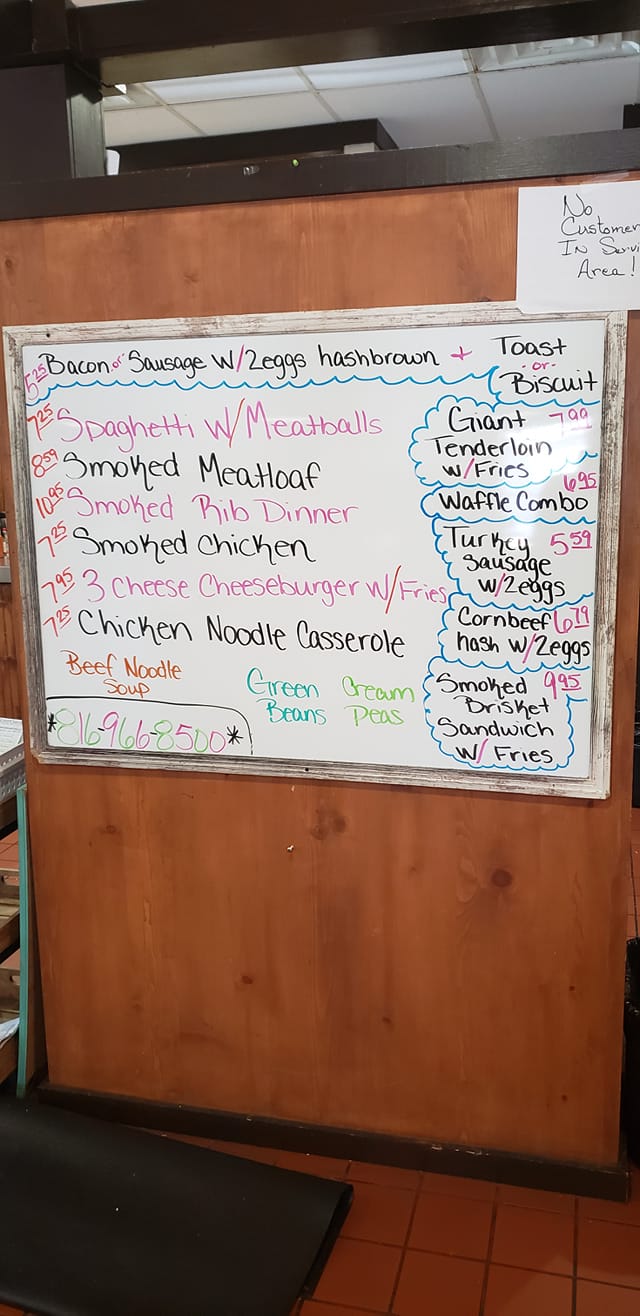 No
Customer
In Servi
Area!
5.25 Bacon or Sausage W/2eggs hashbrown + Toast
-or-
Biscuit
7.25 Spaghetti W/Meatballs
8.59 Smoked Meatloaf
10.95 Smoked Rib Dinner
7.25 Smoked Chicken
7.95 3 Cheese Cheeseburger W/Fries
7.25 Chicken Noodle Casserole
Beef Noodle
Soup
Green
Beans
Cream
Peas
*816-966-8500*
Giant 7.99
Tenderloin
w/Fries
6.95
Waffle Combo
Turkey 5.59
Sausage
w/2eggs
Cornbeef 6.79
hash w/2eggs
Smoked 9.95
Brisket
Sandwich
W/ Fries